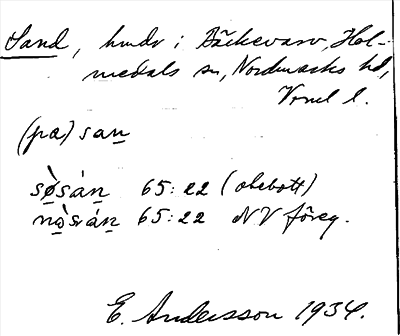 Sand, hmdr i Bäckevarv, Hol-
medals sn, Nordmarks hd,
Vrml l.
(pa) san
sø̀sán 65:22 (obebott)
nòsán 65:22 NV föreg.
E. Andersson 1934.